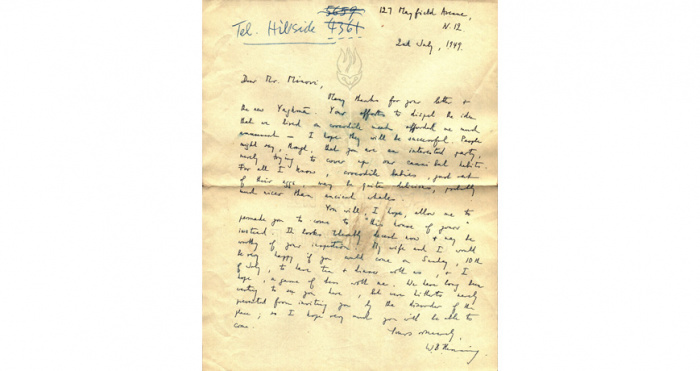 5659
Tel. Hillside 4361
127 Mayfield Avenue,
N. 12.
2nd July, 1949.
Dear Mr. Minovi,
Many thanks for your letter &
the new Yaghmā. Your efforts to dispel the idea
that we lived on crocodile meat afforded me much
amusement – I hope they will be successful. People
might say, though, that you are an interested party,
merely trying to cover up our cannibal habits.
For all I know, crocodile babies, just out
of their eggs, may be quite delicious, probably
much nicer than ancient whales.
You will, I hope, allow me to
persuade you to come to "this house of yours"
instead. It looks decent now & may be
worthy of your inspection. My wife and I would
be very happy if you would come on Sunday, 10th
of July, to have tea & dinner with us, & I
hope, a game of with me. We have long been
wanting to see you here, but were hitherto
prevented from inviting you by the disorder of this
place; so I hope very much you will be able to
come.
Yours sincerely,
W.B. Henning